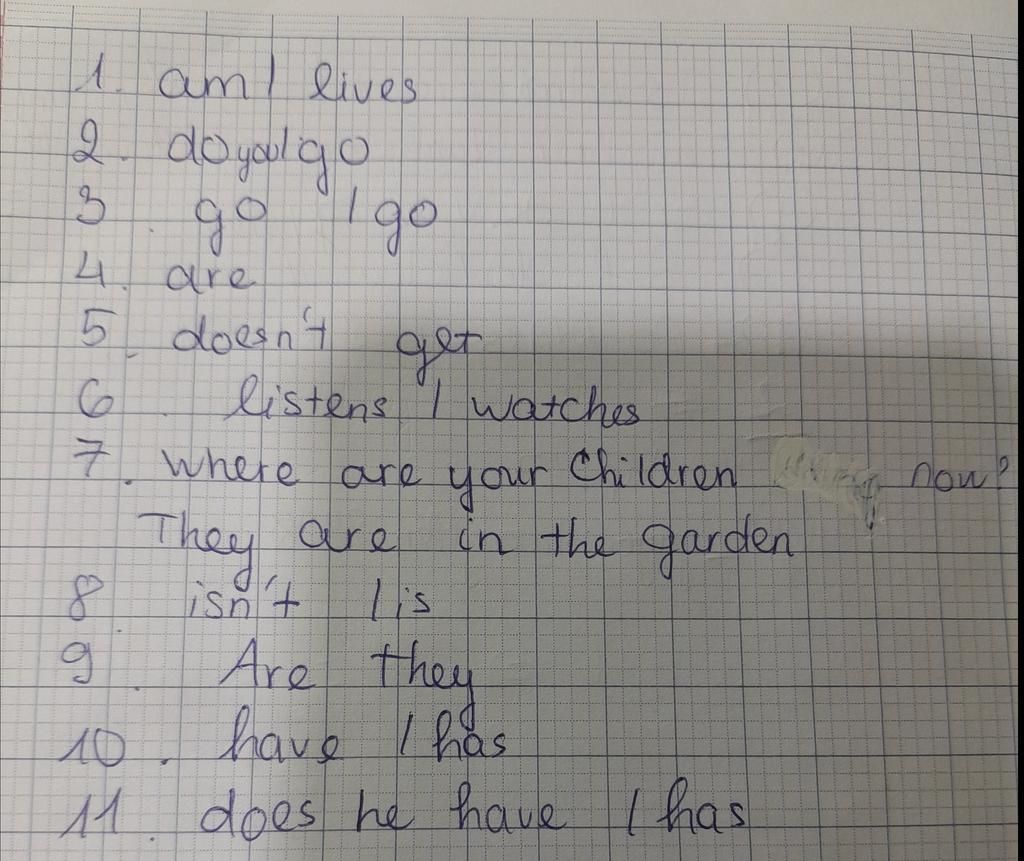 1. am / lives
2. do you / go
3. go / go
4. are
5. doesn't get
6. listens / watches
7. where are your children now?
They are in the garden
8. isn't / is
9. Are they
10. have / has
11. does he have / has